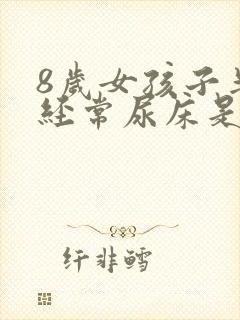 8歲女孩子
經常尿床是
纤非鳕